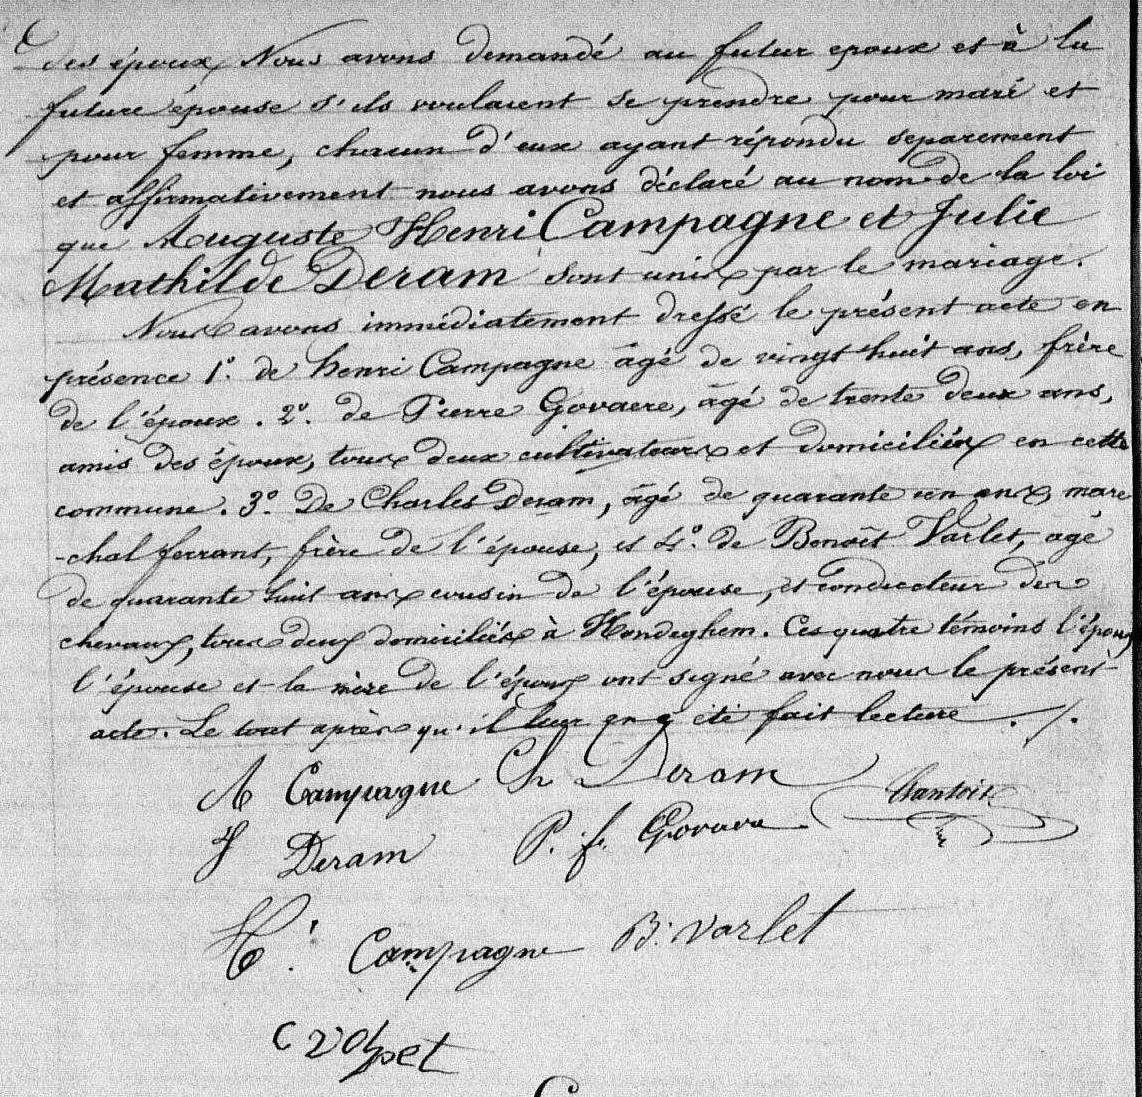 des époux, Nous avons demandé au futur epoux et à la
future épouse s'ils voulaient se prendre pour mari et
pour femme, chacun d'eux ayant répondu separement
et affirmativement nous avons déclaré au nom de la loi
que Auguste Henri Campagne et Julie
Mathilde Deram sont unis par le mariage.
Nous avons immédiatement dressé le présent acte en
présence 1°. de henri Campagne âgé de vingt huit ans, frère
de l'époux. 2°. de Pierre Govaere, âgé de trente deux ans,
amis des époux, tous deux cultivateurs et domiciliés en cette
commune. 3°. De Charles Deram, âgé de quarante un ans, maré
-chal ferrant, frère de l'épouse, et 4°. de Benoît Varlet, agé
de quarante huit ans cousin de l'épouse, et conducteur des
chevaux, tous deux domiciliés à Hondeghem. Ces quatre témoins l'époux
l'épouse et la mère de l'époux ont signé avec nous le présent
acte. Le tout après qu'il leur en a été fait lecture ./.
A Campagne Ch Deram
J Deram P. f. Govaere
H. Campagne B. Varlet
C